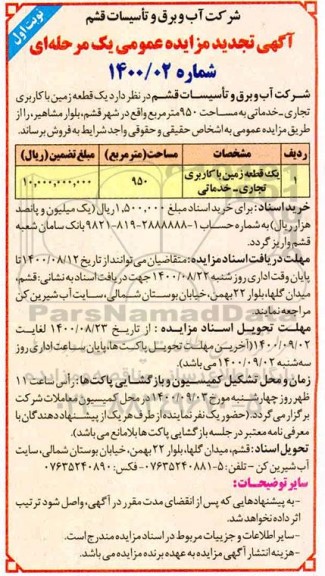 نوبت اول
شرکت آب و برق و تأسیسات قشم
آگهی تجدید مزایده عمومی یک مرحله‌ای
شماره ۱۴۰۰/۰۲
شرکت آب و برق و تأسیسات قشم در نظر دارد یک قطعه زمین با کاربری
تجاری - خدماتی به مساحت ۹۵۰ متر مربع واقع در شهر قشم، بلوار مشاهیر، را از
طریق مزایده عمومی به اشخاص حقیقی و حقوقی واجد شرایط به فروش برساند.
ردیف مشخصات مساحت (متر مربع) مبلغ تضمین (ریال)
۱ یک قطعه زمین با کاربری تجاری - خدماتی ۹۵۰ ۱۰,۰۰۰,۰۰۰,۰۰۰
خرید اسناد: برای خرید اسناد مبلغ ۱,۵۰۰,۰۰۰ ریال (یک میلیون و پانصد
هزار ریال) به شماره حساب ۱-۲۸۸۸۸۸۸-۸۱۹-۹۸۲۱ بانک سامان شعبه
قشم واریز گردد.
مهلت دریافت اسناد مزایده: متقاضیان می‌توانند از تاریخ ۱۴۰۰/۰۸/۱۲ تا
پایان وقت اداری روز شنبه ۱۴۰۰/۰۸/۲۲ جهت دریافت اسناد به نشانی: قشم،
میدان گلها، بلوار ۲۲ بهمن، خیابان بوستان شمالی، سایت آب شیرین کن
مراجعه نمایند.
مهلت تحویل اسناد مزایده: از تاریخ ۱۴۰۰/۰۸/۲۳ لغایت
۱۴۰۰/۰۹/۰۲ (آخرین مهلت تحویل پاکت‌ها، پایان ساعت اداری روز
سه‌شنبه ۱۴۰۰/۰۹/۰۲ می‌باشد).
زمان و محل تشکیل کمیسیون و بازگشایی پاکت‌ها: رأس ساعت ۱۱
ظهر روز چهارشنبه مورخ ۱۴۰۰/۰۹/۰۳ در محل کمیسیون معاملات شرکت
برگزار می‌گردد. (حضور یک نفر نماینده از طرف هر یک از پیشنهاددهندگان با
معرفی‌نامه معتبر در جلسه بازگشایی پاکت‌ها بلامانع می‌باشد).
تحویل اسناد: قشم، میدان گلها، بلوار ۲۲ بهمن، خیابان بوستان شمالی، سایت
آب شیرین کن - تلفن: ۵-۰۷۶۳۵۲۴۰۸۸۱ - فکس: ۰۷۶۳۵۲۴۰۸۹۰
سایر توضیحات:
- به پیشنهادهایی که پس از انقضای مدت مقرر در آگهی، واصل شود ترتیب
اثر داده نخواهد شد.
- سایر اطلاعات و جزییات مربوط در اسناد مزایده مندرج است.
- هزینه انتشار آگهی مزایده به عهده برنده مزایده می‌باشد.
ParsNamadData